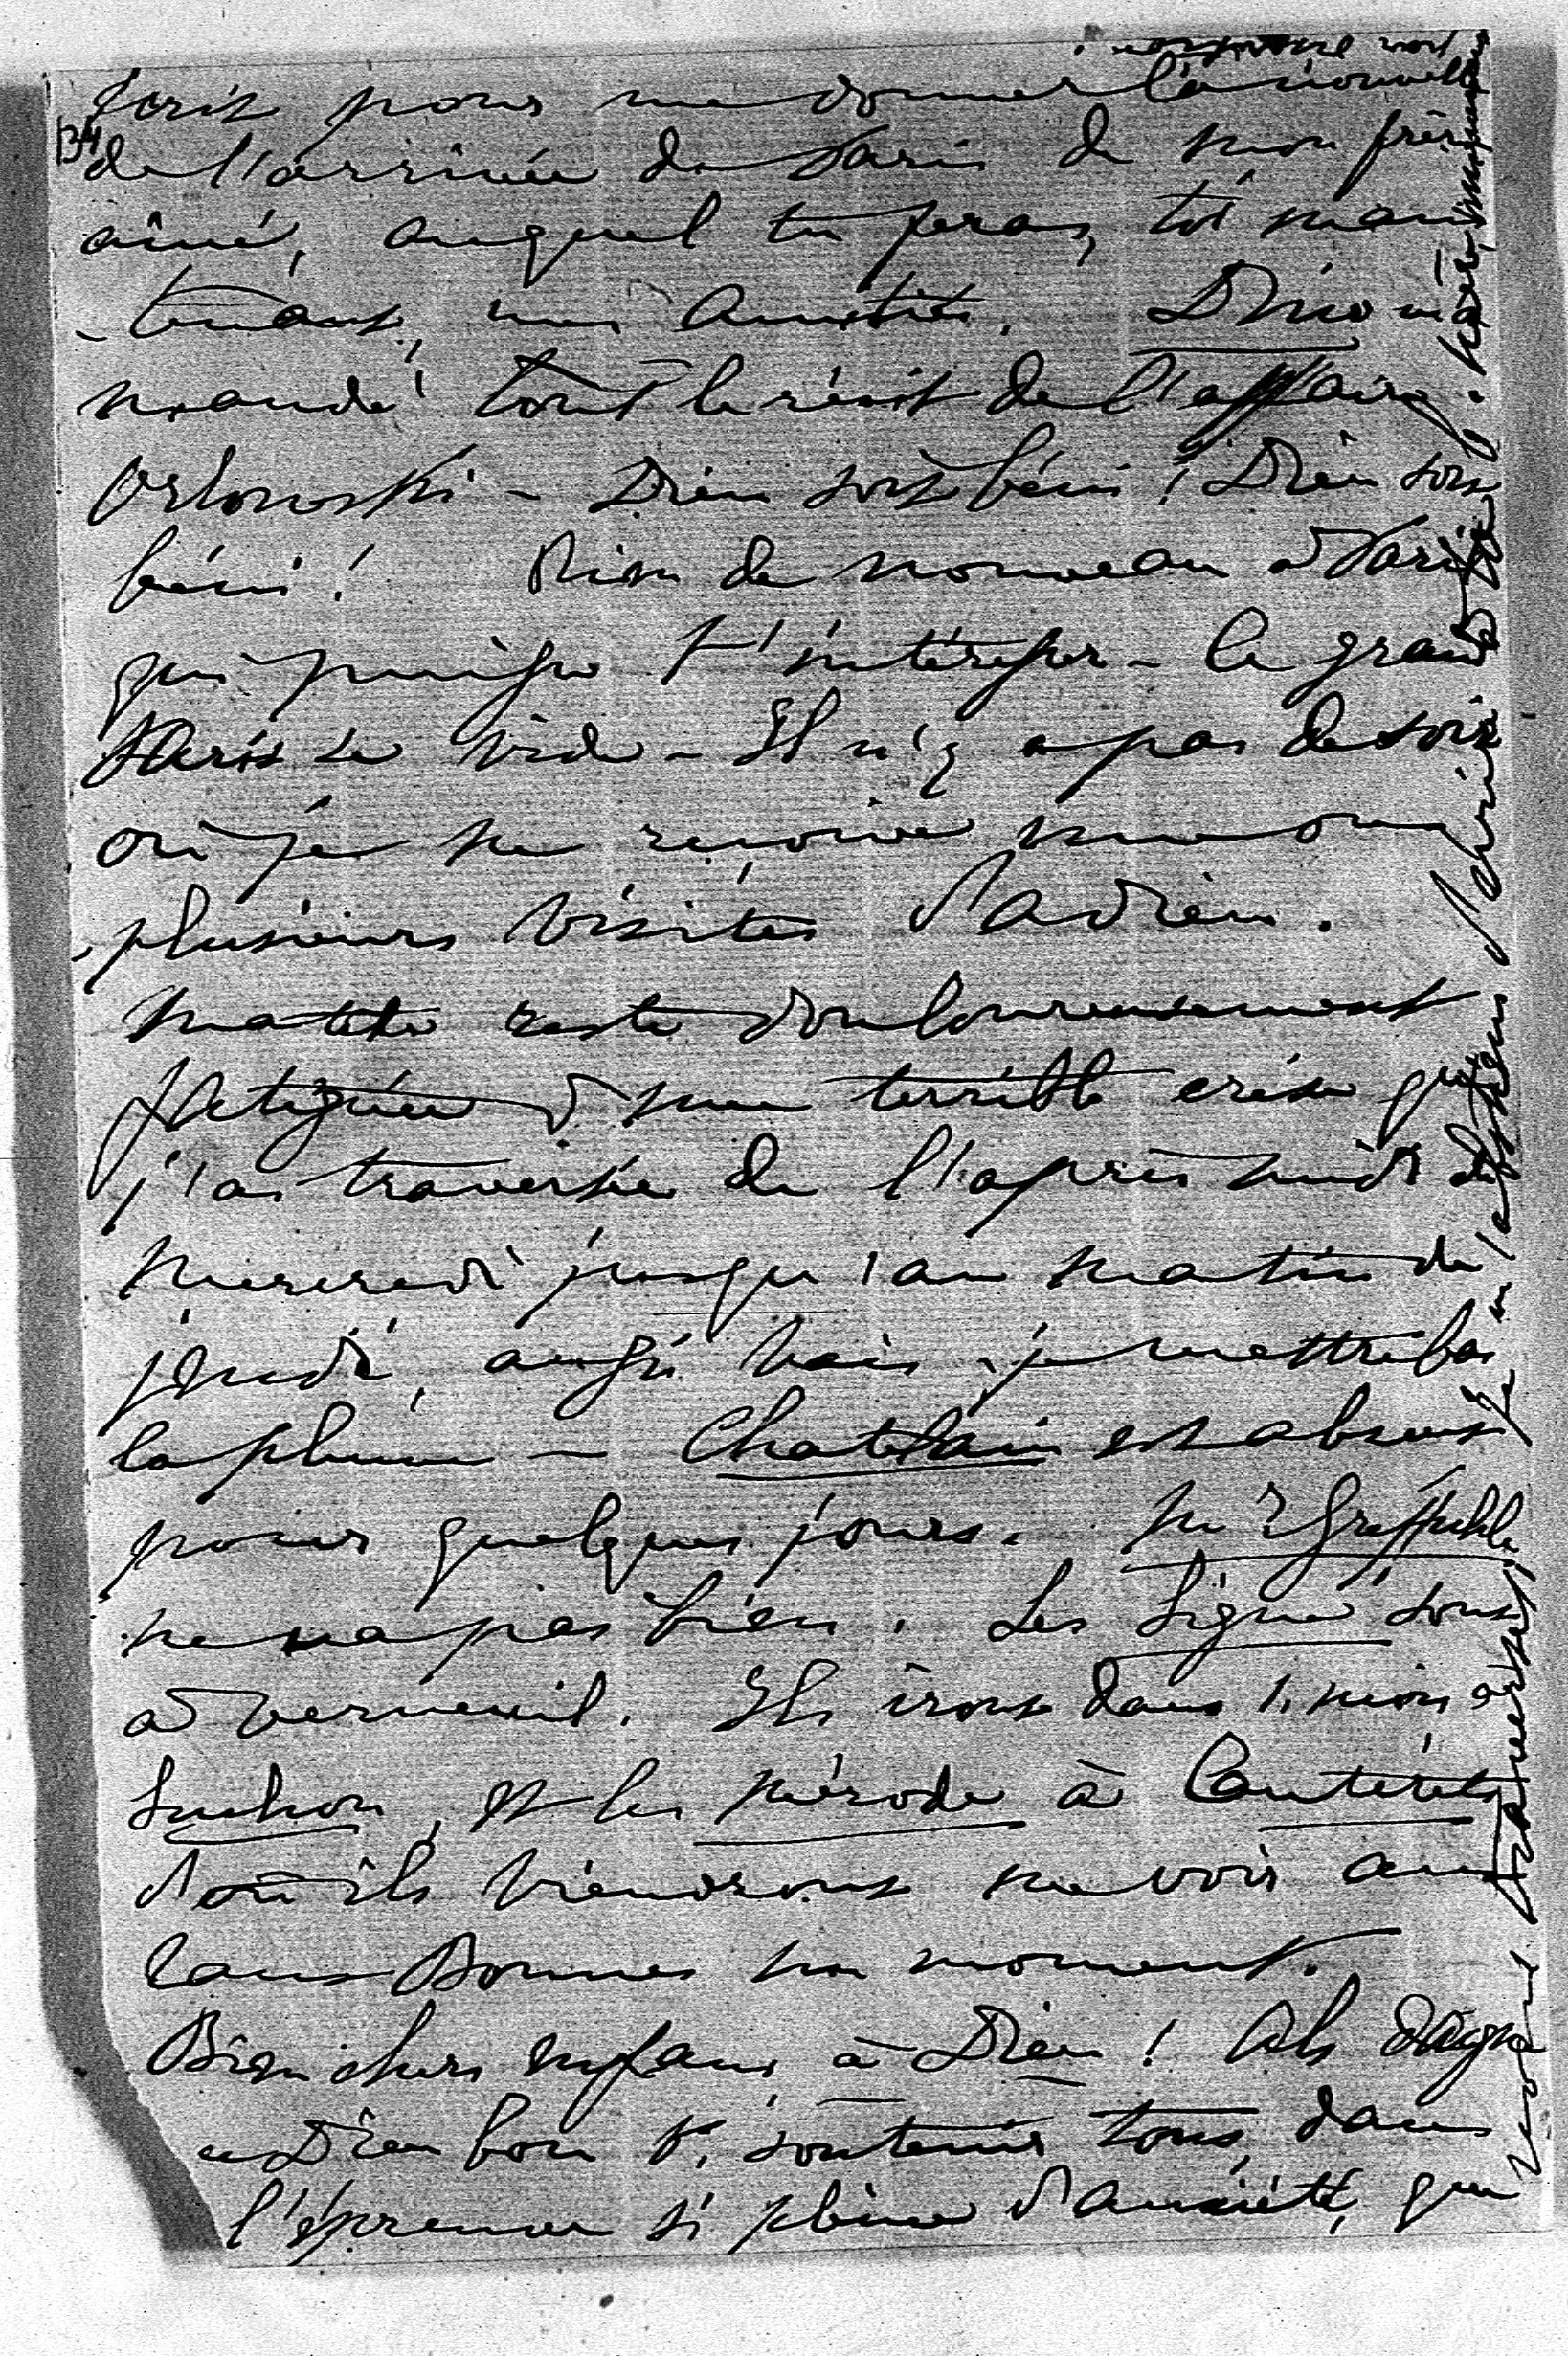 134
écrit pour me donner la nouvelle
de l'arrivée de Paris de mon frère
ainé, auquel tu feras, toi main
-tenant, mes amitiés.
mandé tout le récit de l'affaire
Orlowski – Dieu soit béni ! Dieu soit
béni ! Rien de nouveau à Paris
qui puisse t'intéresser – le grand
Paris se vide – Il n'y a pas de soir
où je ne reçoive une ou
plusieurs visites d'adieu.
reste douloureusement
fatiguée d'une terrible crise que
j'ai traversée de l'après midi de
mercredi jusqu'au matin de
jeudi, aussi vais-je mettre bas
la plume – Chatelain est absent
pour quelques jours. Mr Greffulhe
ne va pas bien. Les Ligne sont
à Verneuil. Ils iront dans 1. mois à
Luchon, et les Mérode à Cauterets
d'où ils viendront me voir aux
Eaux Bonnes un moment.
Bien chers enfans, à Dieu ! Ah daigne
ce Dieu bon v. soutenir tous, dans
l'épreuve si pleine d'anxiété, que